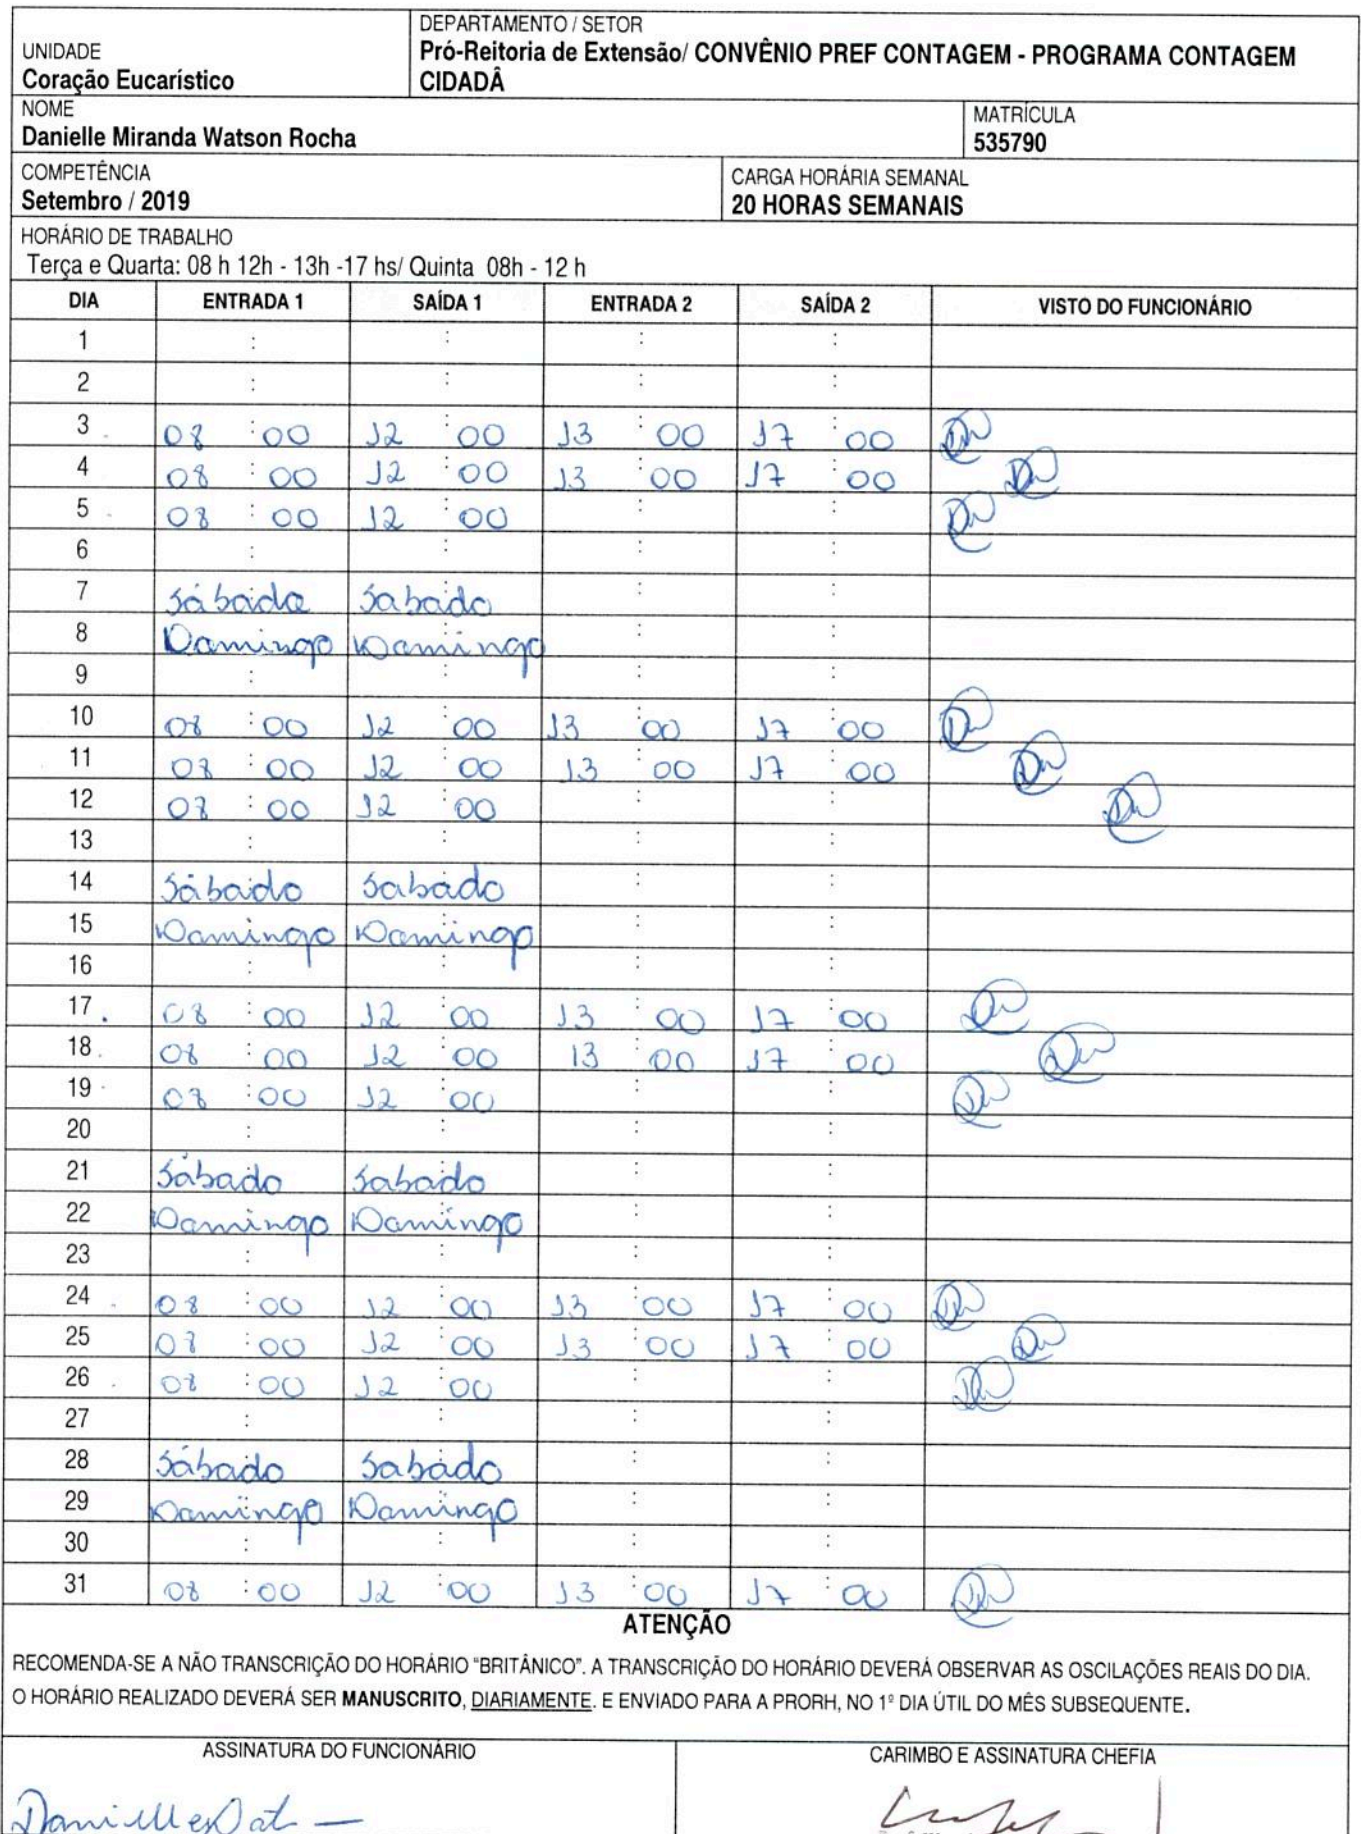 UNIDADE
Coração Eucarístico
DEPARTAMENTO / SETOR
Pró-Reitoria de Extensão/ CONVÊNIO PREF CONTAGEM - PROGRAMA CONTAGEM
CIDADÂ
NOME
Danielle Miranda Watson Rocha
MATRÍCULA
535790
COMPETÊNCIA
Setembro / 2019
CARGA HORÁRIA SEMANAL
20 HORAS SEMANAIS
HORÁRIO DE TRABALHO
Terça e Quarta: 08 h 12h - 13h -17 hs/ Quinta 08h - 12 h
DIA ENTRADA 1 SAÍDA 1 ENTRADA 2 SAÍDA 2 VISTO DO FUNCIONÁRIO
1 : : : :
2 : : : :
3 08 : 00 12 : 00 13 : 00 17 : 00
4 08 : 00 12 : 00 13 : 00 17 : 00
5 08 : 00 12 : 00 : :
6 : : : :
7 Sábado Sabado : :
8 Domingo Domingo : :
9 : : : :
10 08 : 00 12 : 00 13 : 00 17 : 00
11 08 : 00 12 : 00 13 : 00 17 : 00
12 08 : 00 12 : 00 : :
13 : : : :
14 Sábado Sabado : :
15 Domingo Domingo : :
16 : : : :
17 08 : 00 12 : 00 13 : 00 17 : 00
18 08 : 00 12 : 00 13 : 00 17 : 00
19 08 : 00 12 : 00 : :
20 : : : :
21 Sábado Sabado : :
22 Domingo Domingo : :
23 : : : :
24 08 : 00 12 : 00 13 : 00 17 : 00
25 08 : 00 12 : 00 13 : 00 17 : 00
26 08 : 00 12 : 00 : :
27 : : : :
28 Sábado Sabado : :
29 Domingo Domingo : :
30 : : : :
31 08 : 00 12 : 00 13 : 00 17 : 00
ATENÇÃO
RECOMENDA-SE A NÃO TRANSCRIÇÃO DO HORÁRIO "BRITÂNICO". A TRANSCRIÇÃO DO HORÁRIO DEVERÁ OBSERVAR AS OSCILAÇÕES REAIS DO DIA.
O HORÁRIO REALIZADO DEVERÁ SER MANUSCRITO, DIARIAMENTE. E ENVIADO PARA A PRORH, NO 1º DIA ÚTIL DO MÊS SUBSEQUENTE.
ASSINATURA DO FUNCIONÁRIO
CARIMBO E ASSINATURA CHEFIA